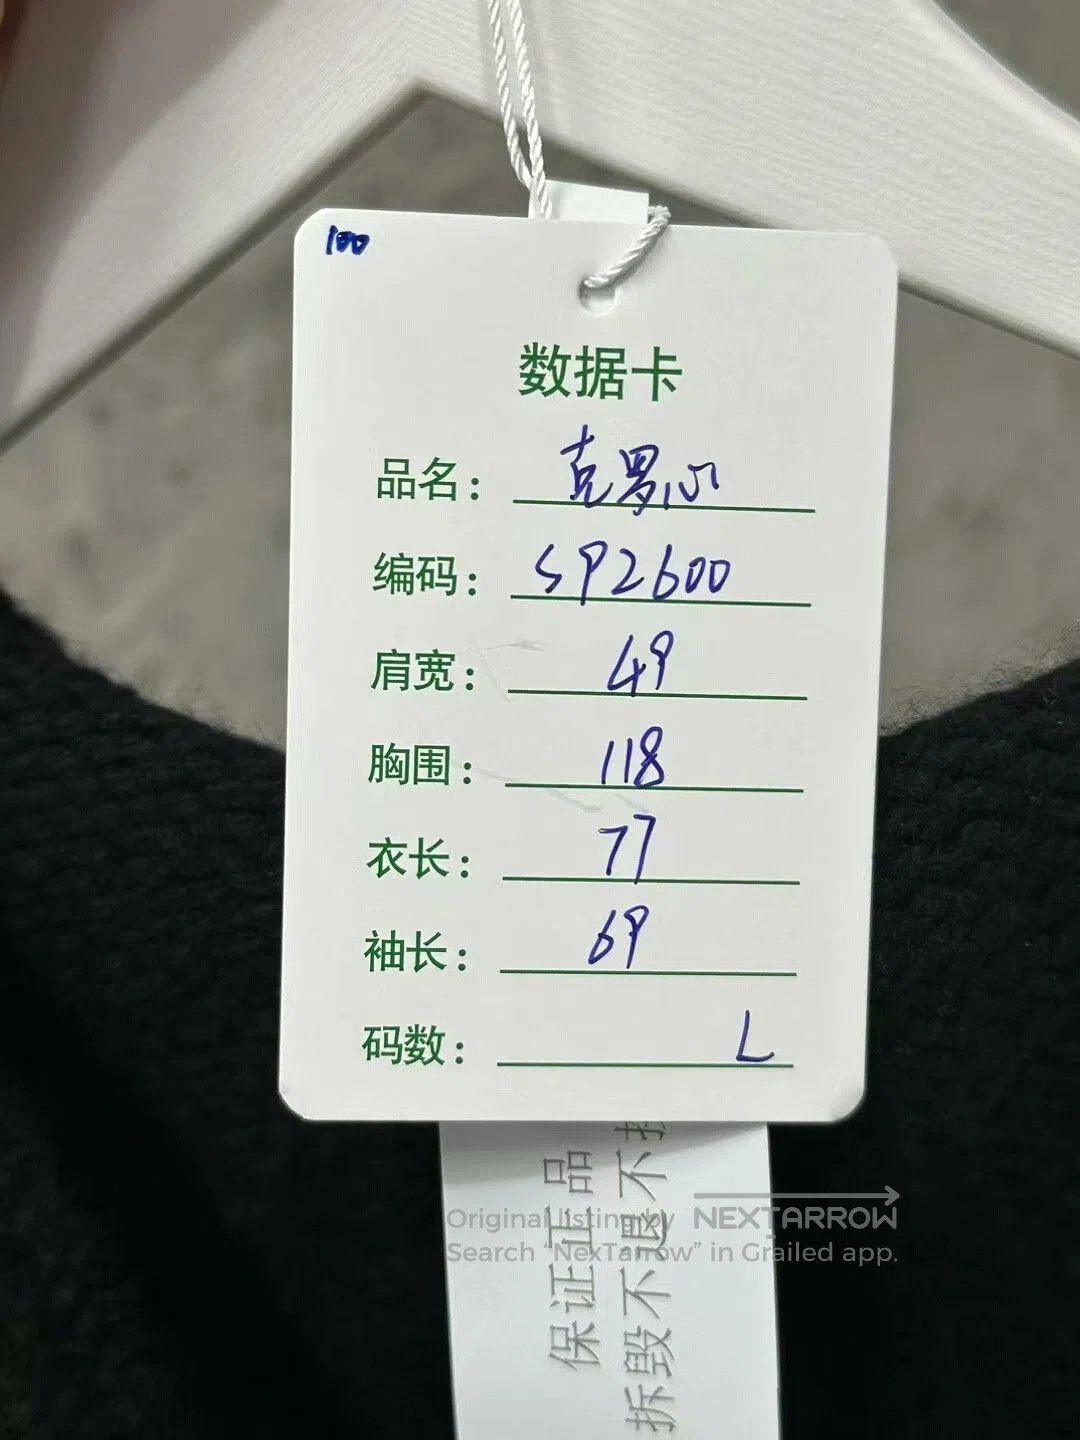 100
数据卡
品名：克罗心
编码：SP2600
肩宽：49
胸围：118
衣长：77
袖长：69
码数：L
保证正品
拆毁不退不
Original listing by NEXTARROW
Search "NexTarrow" in Grailed app.